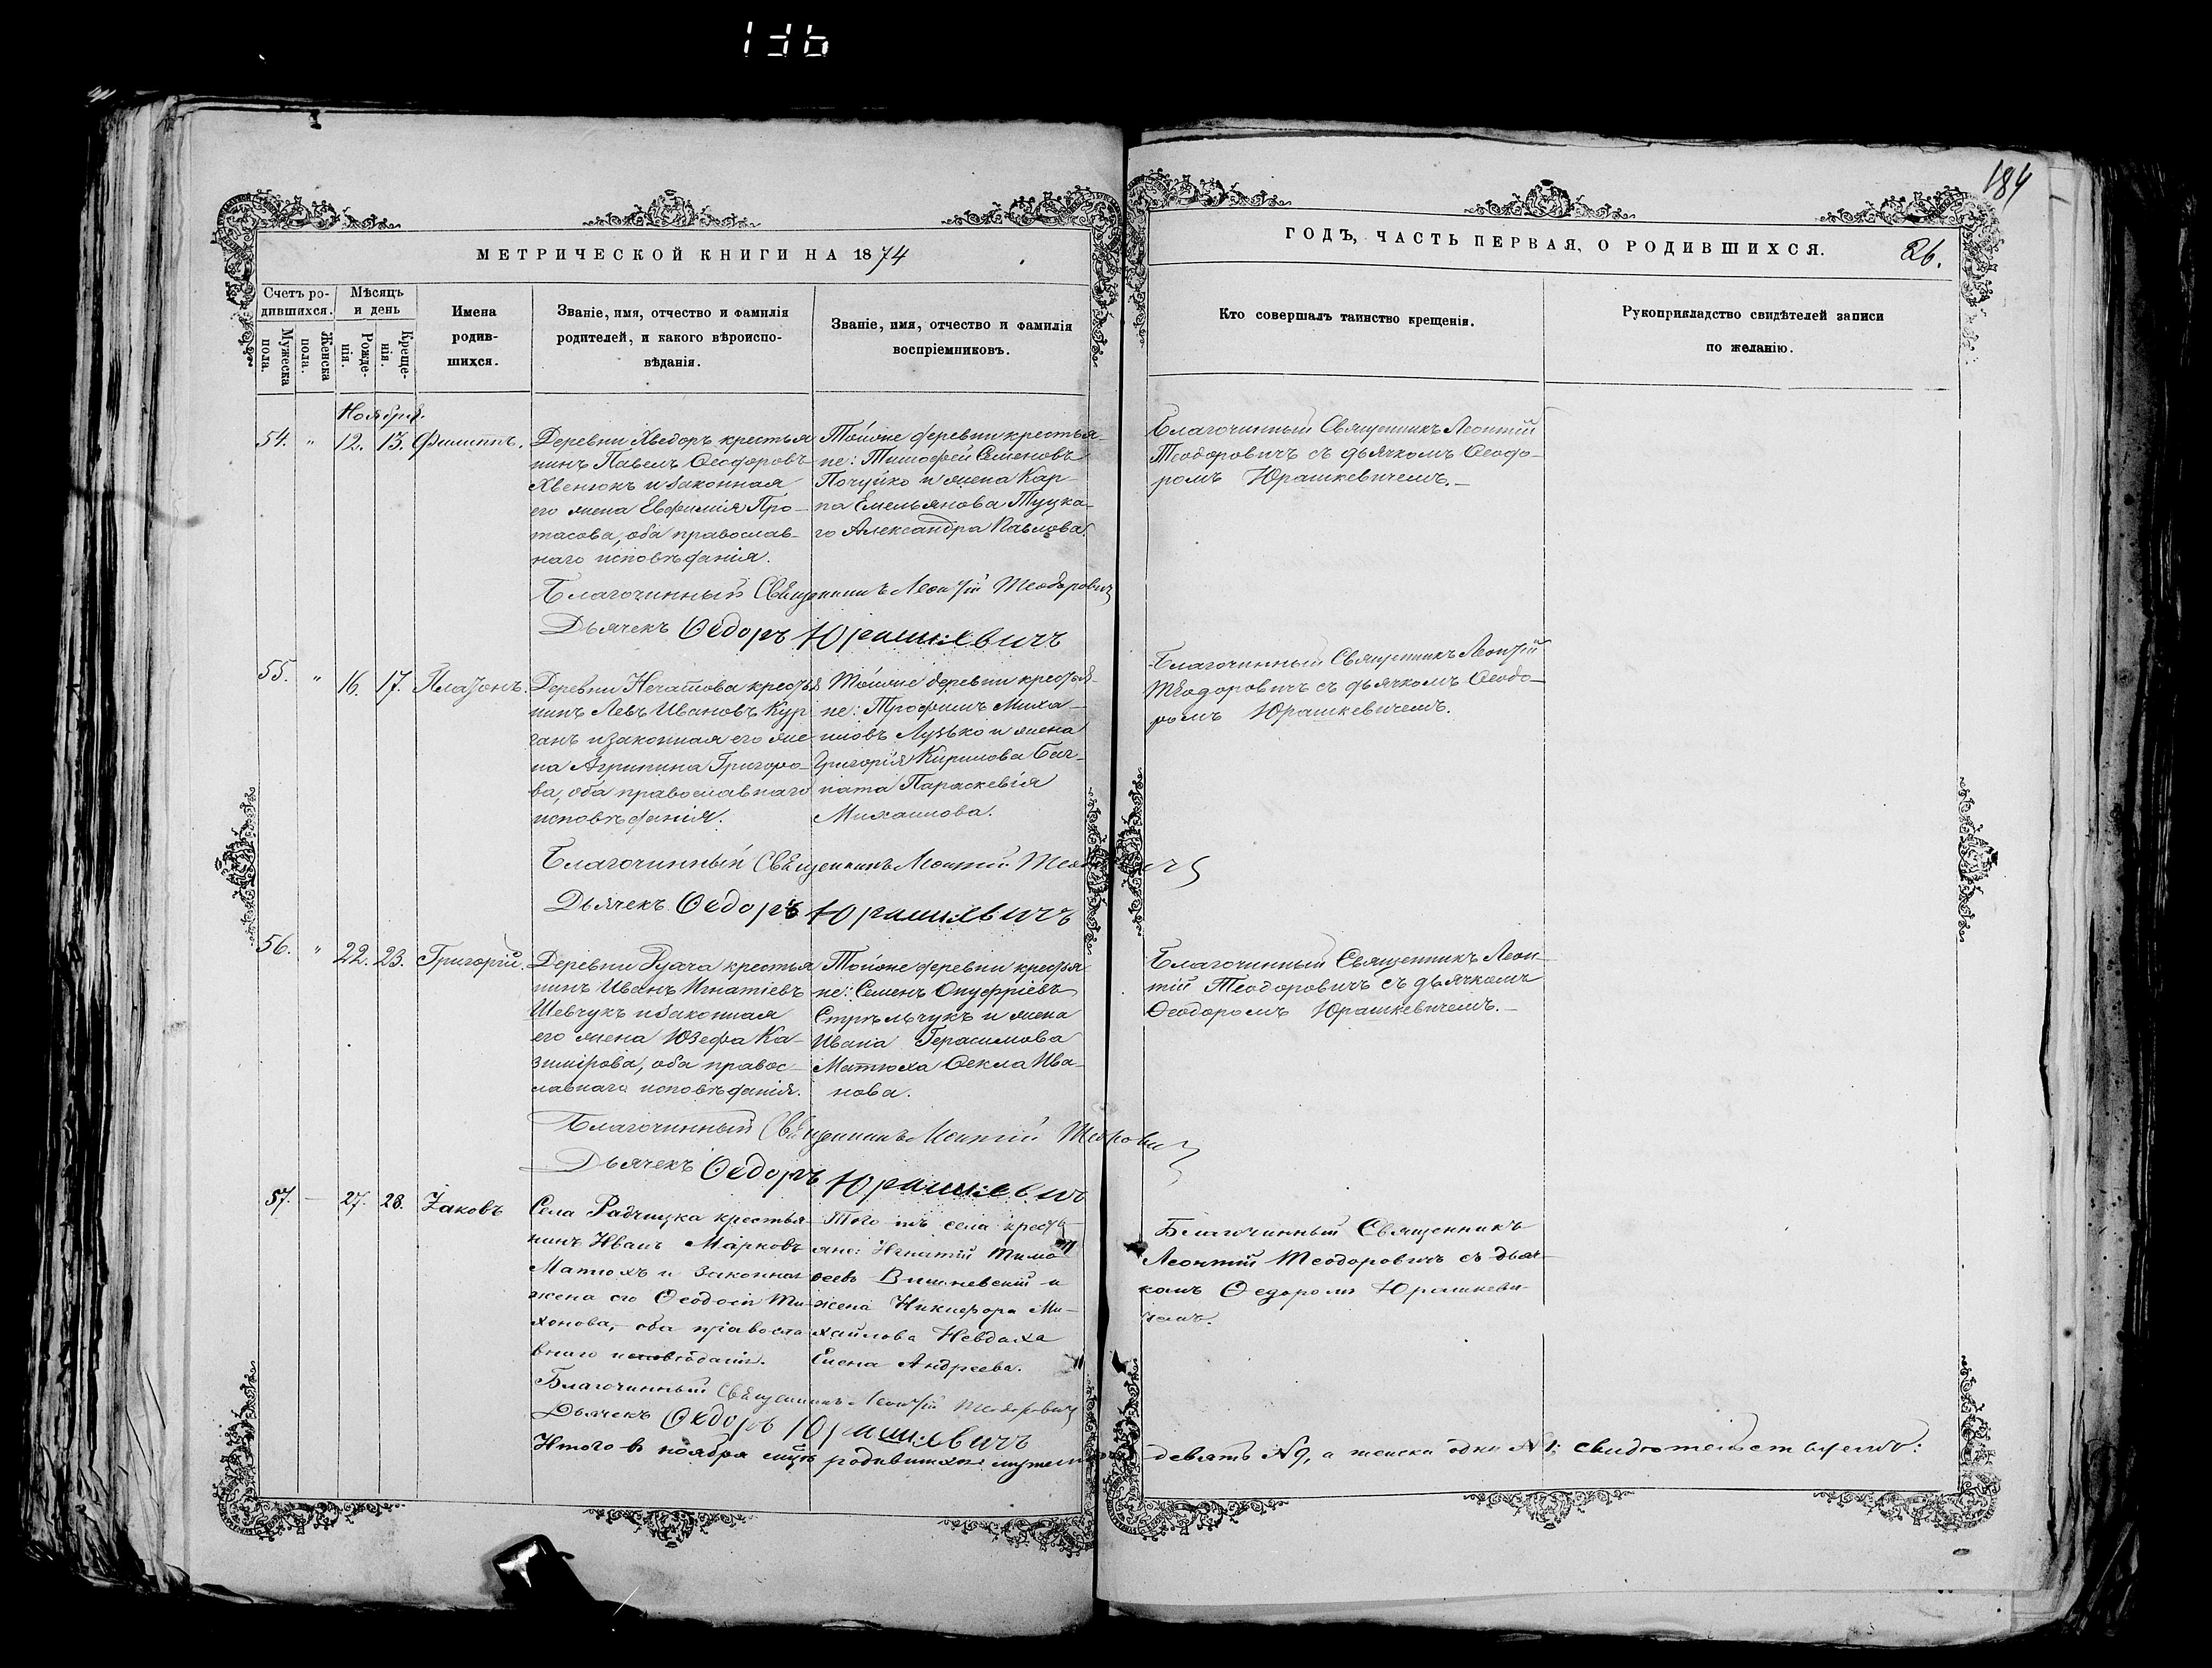 184
МЕТРИЧЕСКОЙ КНИГИ НА 1874
ГОДЪ, ЧАСТЬ ПЕРВАЯ, О РОДИВШИХСЯ.
26.
Счетъ ро-
дившихся.
Мужеска
пола.
Женска
пола.
Мѣсяцъ
и день
Рожде-
нія.
Креще-
нія.
Имена
родив-
шихся.
Званіе, имя, отчество и фамилія
родителей, и какого вѣроиспо-
вѣданія.
Званіе, имя, отчество и фамилія
воспріемниковъ.
Кто совершалъ таинство крещенія.
Рукоприкладство свидѣтелей записи
по желанію.
Ноября.
54. " 12. 13. Филиппъ.
Деревни Хведоръ крестья
нинъ Павелъ Ѳеодоровъ
Хвенюкъ и законная
его жена Евфимія Про-
тасова, оба православ-
наго исповѣданія.
Тойже деревни крестья-
не: Тимофей Семеновъ
Почуйко и жена Кар-
па Емельянова Туцка-
го Александра Павлова.
Благочинный Священникъ Леонтій
Теодоровичъ съ дьячкомъ Ѳеодо-
ромъ Юрашкевичемъ.-
Благочинный Священникъ Леонтій Теодорович
Дьячекъ Ѳедоръ Юрашкевичъ
55. " 16. 17. Платонъ.
Деревни Нечатова крестья
нинъ Левъ Ивановъ Кур
ганъ и законная его же
на Агрипина Григоро-
ва, оба православнаго
исповѣданія.
Тойже деревни крестья-
не: Трофимъ Миха-
иловъ Лузько и жена
Григорія Кирилова
Параскевія
Михаилова.
Благочинный Священникъ Леонтій
Теодоровичъ съ дьячкомъ Ѳеодо-
ромъ Юрашкевичемъ.
Благочинный Священникъ Леонтій
Дьячекъ Ѳедоръ Юрашкевичъ
56. " 22. 23. Григорій.
Деревни Рудча крестья
нинъ Иванъ Игнатіевъ
Шевчукъ и законная
его жена Юзефа Ка-
зимірова, оба правос-
лавнаго исповѣданія.
Тойже деревни крестья
не: Семенъ Онуфріевъ
Стрѣльчукъ и жена
Ивана Герасимова
Матюха Ѳекла Ива-
нова.
Благочинный Священникъ Леон-
тій Теодоровичъ съ дьячкомъ
Ѳеодоромъ Юрашкевичемъ.-
Благочинный Священникъ Леонтій
Дьячекъ Ѳедоръ Юрашкевичъ
57. - 27. 28. Іаковъ
Села Радчицка крестья-
нинъ Иванъ Марковъ
Матюхъ и законная
жена его Ѳеодосія Ти-
хонова, - оба правосла
внаго исповѣданія.
Того же села крестья-
не: Игнатій Тимо
ѳеевъ Вишневскій и
жена Никифора Ми-
хайлова Невдаха
Елена Андреева.
Благочинный Священникъ
Леонтій Теодоровичъ съ дьяч-
комъ Ѳедоромъ Юрашкеви-
чемъ.
Благочинный Священникъ Леонтій Теодорович
Дьячекъ Ѳедоръ Юрашкевичъ
Итого въ ноябрѣ мцѣ родившихся мужеска
девять №9, а женска одна №1: